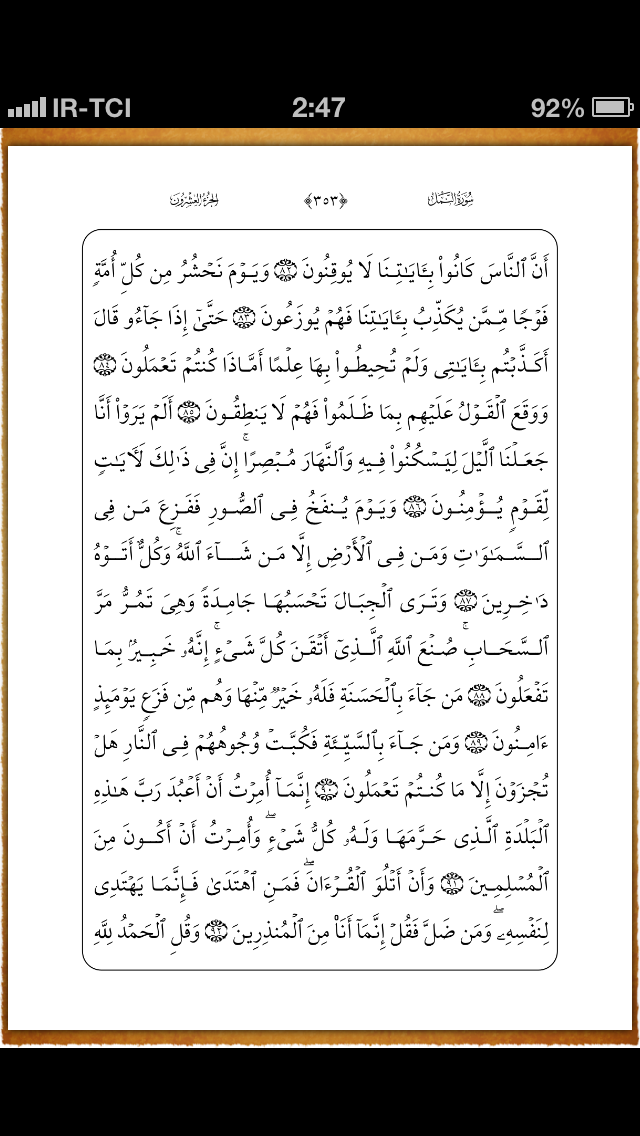 IR-TCI 2:47 92%
سُورَةُ النَّمْل ﴿٣٥٣﴾ الجُزءُ العِشْرُون
أَنَّ ٱلنَّاسَ كَانُوا۟ بِـَٔايَـٰتِنَا لَا يُوقِنُونَ ٨٢ وَيَوْمَ نَحْشُرُ مِن كُلِّ أُمَّةٍ
فَوْجًا مِّمَّن يُكَذِّبُ بِـَٔايَـٰتِنَا فَهُمْ يُوزَعُونَ ٨٣ حَتَّىٰٓ إِذَا جَآءُو قَالَ
أَكَذَّبْتُم بِـَٔايَـٰتِى وَلَمْ تُحِيطُوا۟ بِهَا عِلْمًا أَمَّاذَا كُنتُمْ تَعْمَلُونَ ٨٤
وَوَقَعَ ٱلْقَوْلُ عَلَيْهِم بِمَا ظَلَمُوا۟ فَهُمْ لَا يَنطِقُونَ ٨٥ أَلَمْ يَرَوْا۟ أَنَّا
جَعَلْنَا ٱلَّيْلَ لِيَسْكُنُوا۟ فِيهِ وَٱلنَّهَارَ مُبْصِرًا ۚ إِنَّ فِى ذَٰلِكَ لَـَٔايَـٰتٍ
لِّقَوْمٍ يُؤْمِنُونَ ٨٦ وَيَوْمَ يُنفَخُ فِى ٱلصُّورِ فَفَزِعَ مَن فِى
ٱلسَّمَـٰوَٰتِ وَمَن فِى ٱلْأَرْضِ إِلَّا مَن شَآءَ ٱللَّهُ ۚ وَكُلٌّ أَتَوْهُ
دَٰخِرِينَ ٨٧ وَتَرَى ٱلْجِبَالَ تَحْسَبُهَا جَامِدَةً وَهِىَ تَمُرُّ مَرَّ
ٱلسَّحَابِ ۚ صُنْعَ ٱللَّهِ ٱلَّذِىٓ أَتْقَنَ كُلَّ شَىْءٍ ۚ إِنَّهُۥ خَبِيرٌۢ بِمَا
تَفْعَلُونَ ٨٨ مَن جَآءَ بِٱلْحَسَنَةِ فَلَهُۥ خَيْرٌ مِّنْهَا وَهُم مِّن فَزَعٍ يَوْمَئِذٍ
ءَامِنُونَ ٨٩ وَمَن جَآءَ بِٱلسَّيِّئَةِ فَكُبَّتْ وُجُوهُهُمْ فِى ٱلنَّارِ هَلْ
تُجْزَوْنَ إِلَّا مَا كُنتُمْ تَعْمَلُونَ ٩٠ إِنَّمَآ أُمِرْتُ أَنْ أَعْبُدَ رَبَّ هَـٰذِهِ
ٱلْبَلْدَةِ ٱلَّذِى حَرَّمَهَا وَلَهُۥ كُلُّ شَىْءٍ ۖ وَأُمِرْتُ أَنْ أَكُونَ مِنَ
ٱلْمُسْلِمِينَ ٩١ وَأَنْ أَتْلُوَا۟ ٱلْقُرْءَانَ ۖ فَمَنِ ٱهْتَدَىٰ فَإِنَّمَا يَهْتَدِى
لِنَفْسِهِۦ ۖ وَمَن ضَلَّ فَقُلْ إِنَّمَآ أَنَا۠ مِنَ ٱلْمُنذِرِينَ ٩٢ وَقُلِ ٱلْحَمْدُ لِلَّهِ